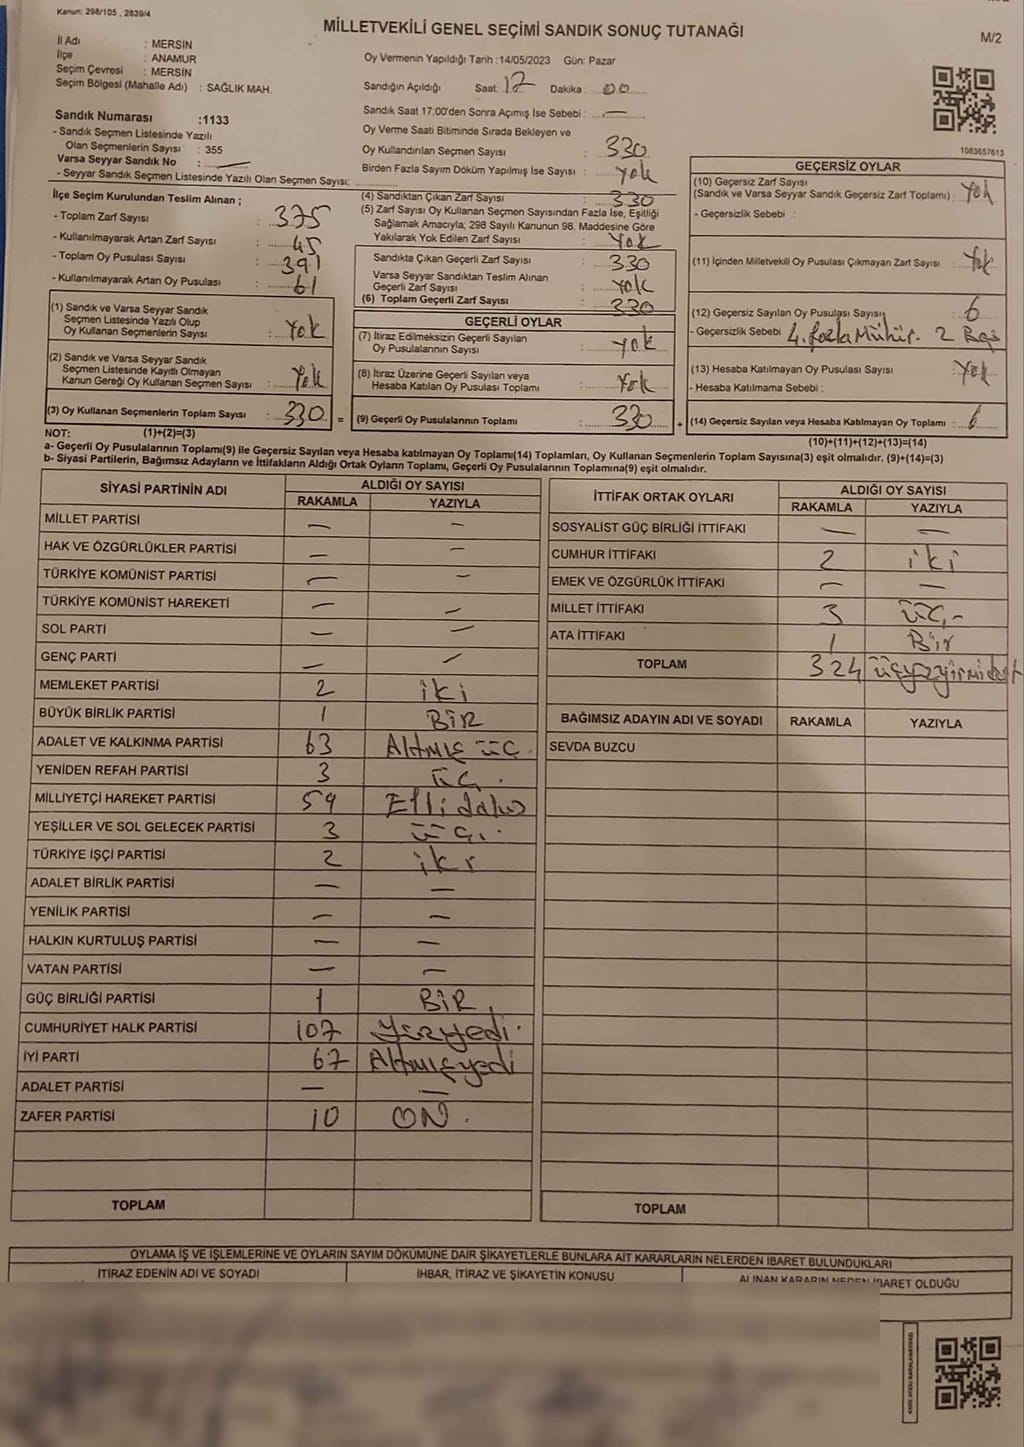 Kanun: 298/105 , 2839/4
MİLLETVEKİLİ GENEL SEÇİMİ SANDIK SONUÇ TUTANAĞI
M/2
İl Adı : MERSİN
İlçe : ANAMUR
Seçim Çevresi : MERSİN
Seçim Bölgesi (Mahalle Adı) : SAĞLIK MAH.
Sandık Numarası :1133
- Sandık Seçmen Listesinde Yazılı
Olan Seçmenlerin Sayısı : 355
Varsa Seyyar Sandık No : —
- Seyyar Sandık Seçmen Listesinde Yazılı Olan Seçmen Sayısı:
Oy Vermenin Yapıldığı Tarih :14/05/2023 Gün: Pazar
Sandığın Açıldığı Saat: 17 Dakika : 00
Sandık Saat 17:00'den Sonra Açımış İse Sebebi : —
Oy Verme Saati Bitiminde Sırada Bekleyen ve
Oy Kullandırılan Seçmen Sayısı : 330
Birden Fazla Sayım Döküm Yapılmış İse Sayısı : Yok
1083657613
İlçe Seçim Kurulundan Teslim Alınan ;
- Toplam Zarf Sayısı : 375
- Kullanılmayarak Artan Zarf Sayısı : 45
- Toplam Oy Pusulası Sayısı : 391
- Kullanılmayarak Artan Oy Pusulası : 61
(1) Sandık ve Varsa Seyyar Sandık
Seçmen Listesinde Yazılı Olup
Oy Kullanan Seçmenlerin Sayısı : Yok
(2) Sandık ve Varsa Seyyar Sandık
Seçmen Listesinde Kayıtlı Olmayan
Kanun Gereği Oy Kullanan Seçmen Sayısı : Yok
(3) Oy Kullanan Seçmenlerin Toplam Sayısı : 330 =
(4) Sandıktan Çıkan Zarf Sayısı : 330
(5) Zarf Sayısı Oy Kullanan Seçmen Sayısından Fazla İse, Eşitliği
Sağlamak Amacıyla; 298 Sayılı Kanunun 98. Maddesine Göre
Yakılarak Yok Edilen Zarf Sayısı : Yok
Sandıkta Çıkan Geçerli Zarf Sayısı : 330
Varsa Seyyar Sandıktan Teslim Alınan
Geçerli Zarf Sayısı : Yok
(6) Toplam Geçerli Zarf Sayısı : 330
GEÇERLİ OYLAR
(7) İtiraz Edilmeksizin Geçerli Sayılan
Oy Pusulalarının Sayısı : Yok
(8) İtiraz Üzerine Geçerli Sayılan veya
Hesaba Katılan Oy Pusulası Toplamı : Yok
(9) Geçerli Oy Pusulalarının Toplamı : 330 +
GEÇERSİZ OYLAR
(10) Geçersiz Zarf Sayısı
(Sandık ve Varsa Seyyar Sandık Geçersiz Zarf Toplamı) : Yok
- Geçersizlik Sebebi :
(11) İçinden Milletvekili Oy Pusulası Çıkmayan Zarf Sayısı : Yok
(12) Geçersiz Sayılan Oy Pusulası Sayısı : 6
- Geçersizlik Sebebi 4. fazla Mühür. 2 Boş
(13) Hesaba Katılmayan Oy Pusulası Sayısı : Yok
- Hesaba Katılmama Sebebi :
(14) Geçersiz Sayılan veya Hesaba Katılmayan Oy Toplamı : 6
NOT: (1)+(2)=(3)
(10)+(11)+(12)+(13)=(14)
a- Geçerli Oy Pusulalarının Toplamı(9) ile Geçersiz Sayılan veya Hesaba katılmayan Oy Toplamı(14) Toplamları, Oy Kullanan Seçmenlerin Toplam Sayısına(3) eşit olmalıdır. (9)+(14)=(3)
b- Siyasi Partilerin, Bağımsız Adayların ve İttifakların Aldığı Ortak Oyların Toplamı, Geçerli Oy Pusulalarının Toplamına(9) eşit olmalıdır.
SİYASİ PARTİNİN ADI ALDIĞI OY SAYISI
RAKAMLA YAZIYLA
MİLLET PARTİSİ — —
HAK VE ÖZGÜRLÜKLER PARTİSİ — —
TÜRKİYE KOMÜNİST PARTİSİ — —
TÜRKİYE KOMÜNİST HAREKETİ — —
SOL PARTİ — —
GENÇ PARTİ — —
MEMLEKET PARTİSİ 2 iki
BÜYÜK BİRLİK PARTİSİ 1 BİR
ADALET VE KALKINMA PARTİSİ 63 Altmış üç.
YENİDEN REFAH PARTİSİ 3 üç.
MİLLİYETÇİ HAREKET PARTİSİ 59 Elli dokuz
YEŞİLLER VE SOL GELECEK PARTİSİ 3 üç.
TÜRKİYE İŞÇİ PARTİSİ 2 iki
ADALET BİRLİK PARTİSİ — —
YENİLİK PARTİSİ — —
HALKIN KURTULUŞ PARTİSİ — —
VATAN PARTİSİ — —
GÜÇ BİRLİĞİ PARTİSİ 1 BİR
CUMHURİYET HALK PARTİSİ 107 Yüzyedi.
İYİ PARTİ 67 Altmışyedi
ADALET PARTİSİ — —
ZAFER PARTİSİ 10 ON.
TOPLAM
İTTİFAK ORTAK OYLARI ALDIĞI OY SAYISI
RAKAMLA YAZIYLA
SOSYALİST GÜÇ BİRLİĞİ İTTİFAKI — —
CUMHUR İTTİFAKI 2 iki
EMEK VE ÖZGÜRLÜK İTTİFAKI — —
MİLLET İTTİFAKI 3 üç,-
ATA İTTİFAKI 1 Bir
TOPLAM 324 üçyüzyirmidört
BAĞIMSIZ ADAYIN ADI VE SOYADI RAKAMLA YAZIYLA
SEVDA BUZCU
TOPLAM
OYLAMA İŞ VE İŞLEMLERİNE VE OYLARIN SAYIM DÖKÜMÜNE DAİR ŞİKAYETLERLE BUNLARA AİT KARARLARIN NELERDEN İBARET BULUNDUKLARI
İTİRAZ EDENİN ADI VE SOYADI İHBAR, İTİRAZ VE ŞİKAYETİN KONUSU ALINAN KARARIN NEDEN İBARET OLDUĞU